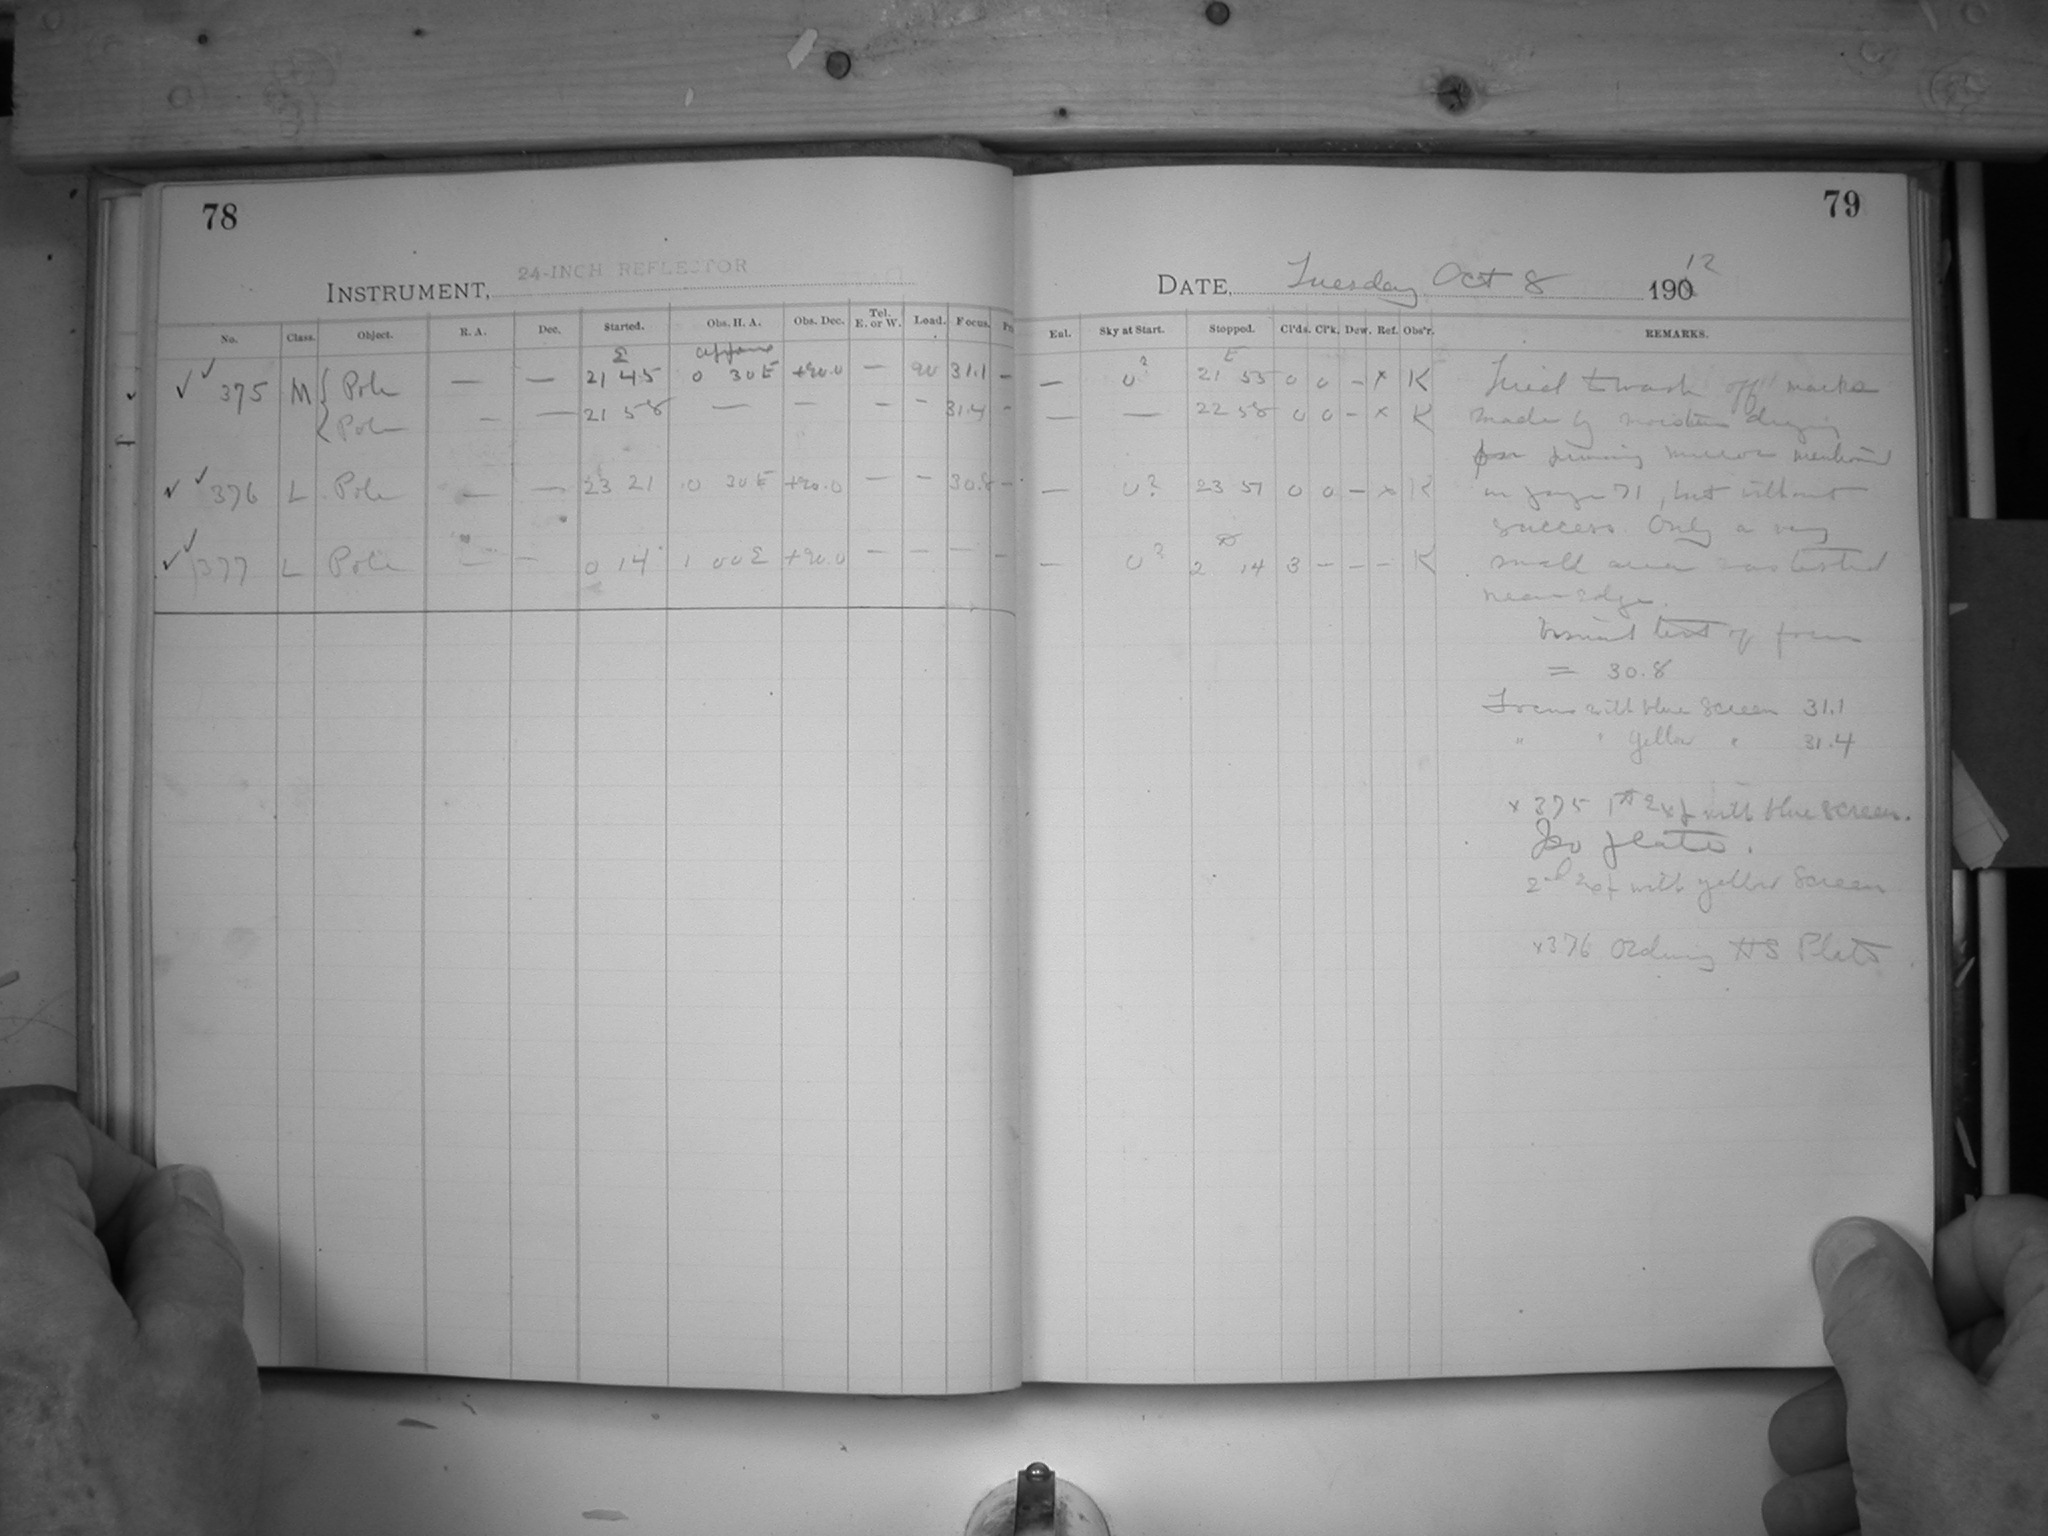 78
79
24-INCH REFLECTOR
INSTRUMENT,
DATE, Tuesday Oct 8 190 12
No. Class. Object. R. A. Dec. Started. Obs. H. A. Obs. Dec. Tel. E. or W. Load. Focus.
Enl. Sky at Start. Stopped. Cl'ds. Cl'k. Dew. Ref. Obs'r. REMARKS.
✓✓ 375 M { Pole — — 21 45 0 30 E +90.0 — 90 31.1 –
— 0? 21 55 0 0 – x K Tried to wash off marks
Pole – — 21 58 — – – – 31.4 –
— — 22 58 0 0 – x K made by moisture drying
mirror mentioned
✓✓ 376 L Pole — — 23 21 0 30 E +90.0 – – 30.8 –
— 0? 23 51 0 0 – x K on page 71, but without
success. Only a very
✓✓ 377 L Pole — – 0 14 1 00 E +90.0 – – – –
— 0? 2 14 3 – – – K small area was tested
near edge.
Visual test of focus
= 30.8
Focus with blue screen 31.1
" " Yellow " 31.4
x 375 1st Exp with blue screen.
Iso plate.
2nd Exp with yellow screen
x376 Ordinary HS Plate